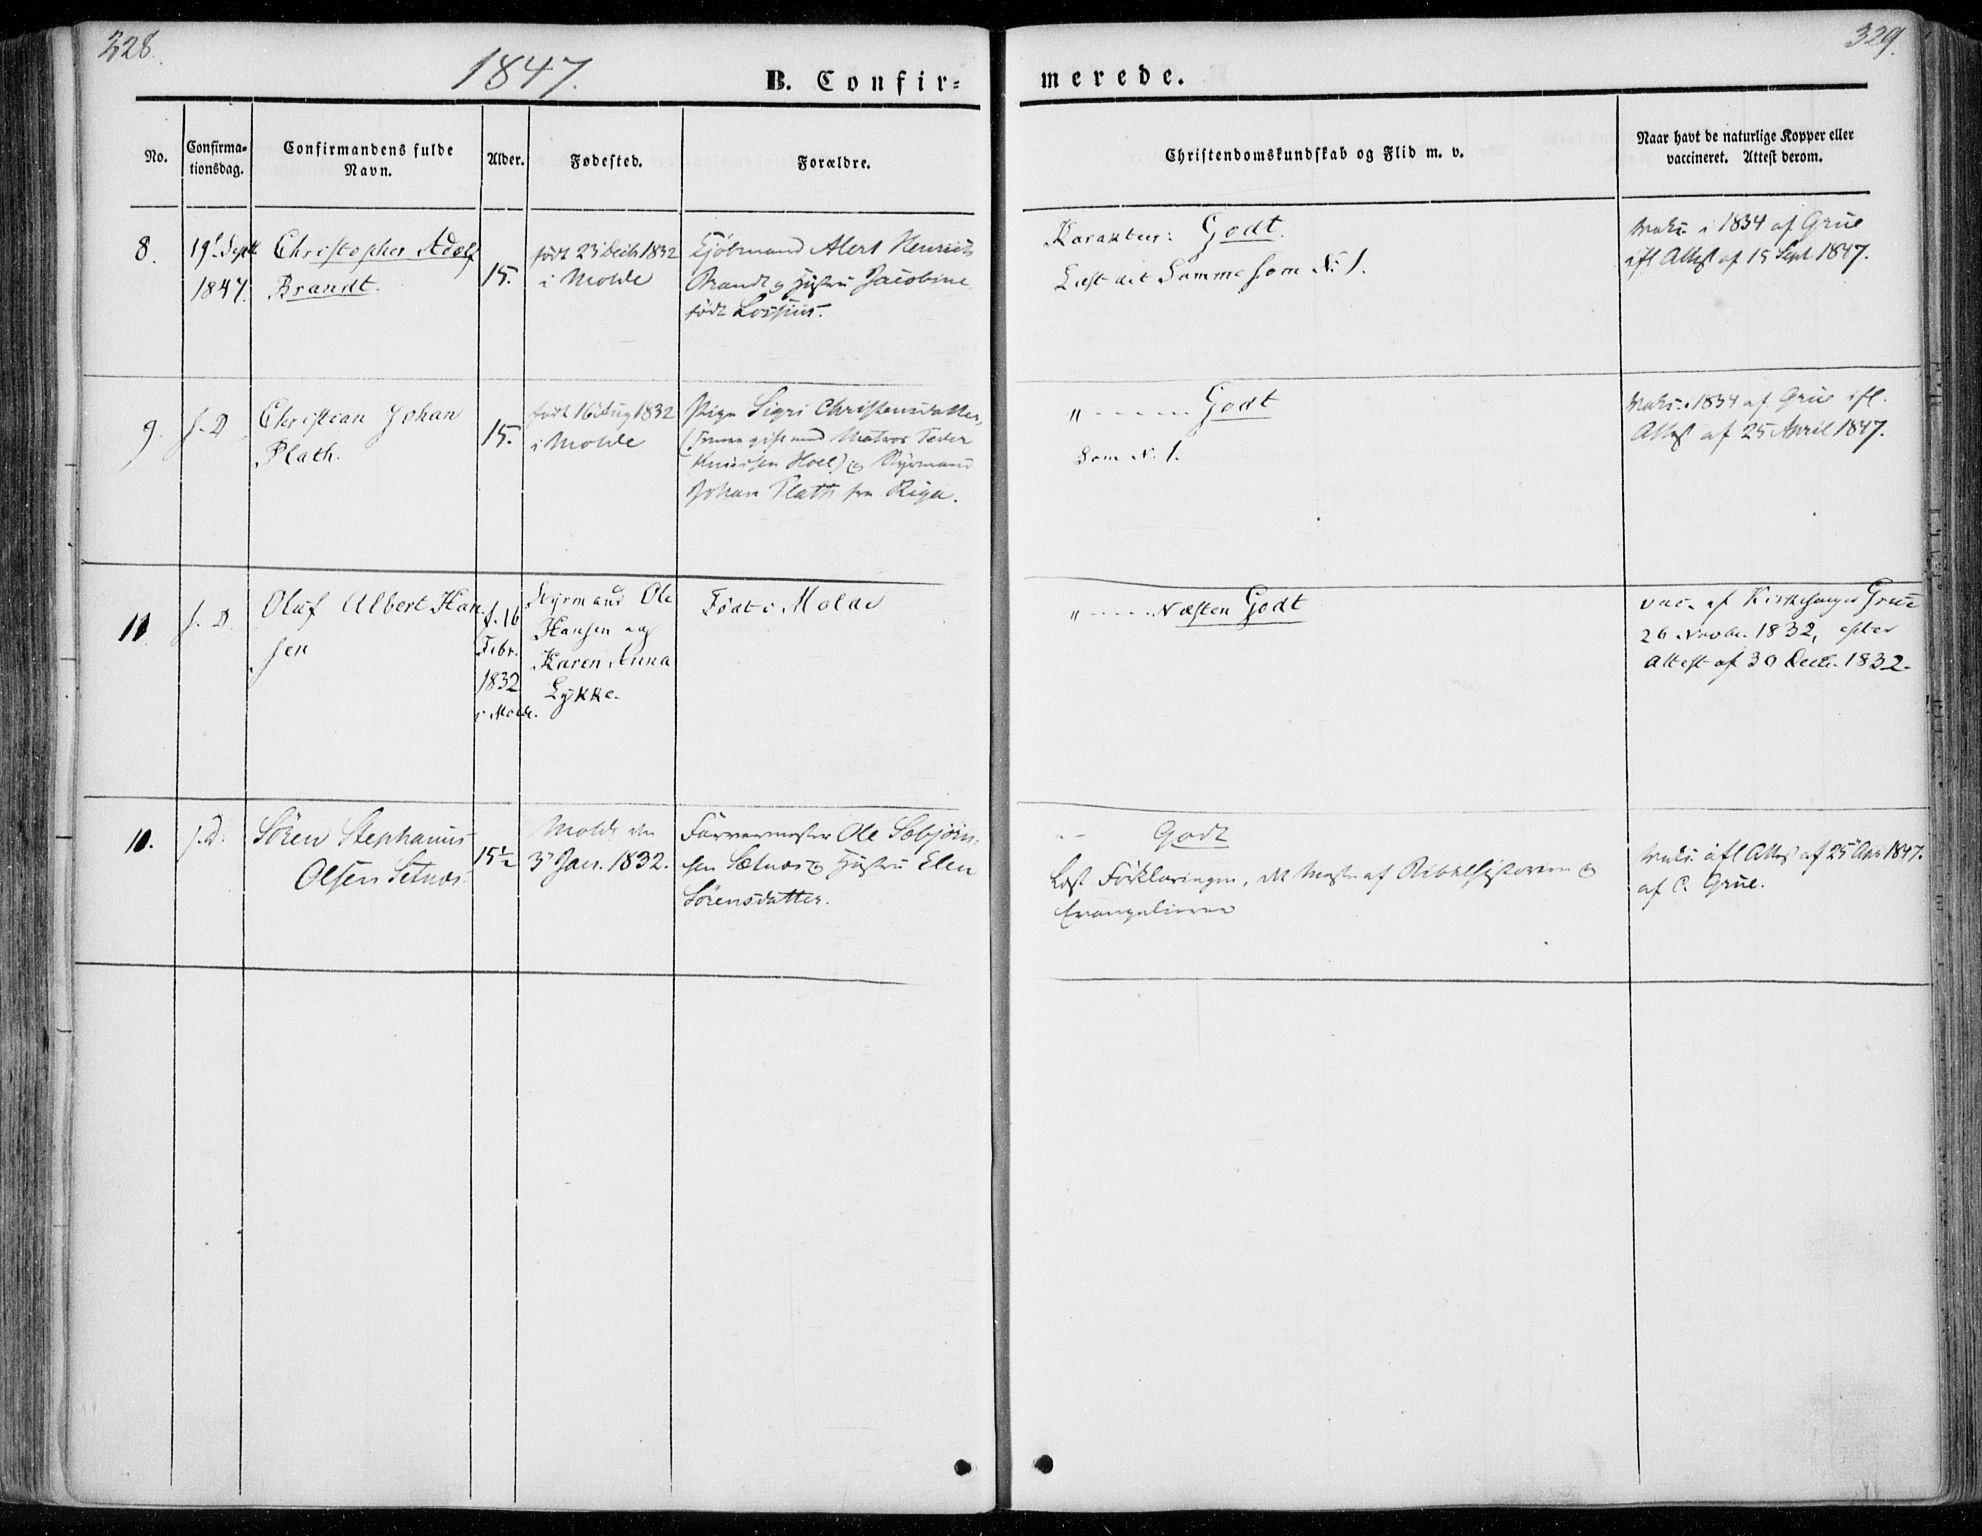 328.
329.
1847.
B. Confir=
merede.
No.
Confirma=
tionsdag.
Confirmandens fulde
Navn.
Alder.
Fødested.
Forældre.
Christendomskundskab og Flid m. v.
Naar havt de naturlige Kopper eller
vaccineret. Attest derom.
8.
19d Septr
1847.
Christopher Adolf
Brandt.
15.
født 23 Decb 1832
i Molde
Kjöbmand Alert Henrich
Brandt og Hustru Jacobine
född Lossius.
Karakter: Godt.
Læst det Samme som No 1.
Vakc. i 1834 af Grüe
ifl Attest af 15 Sept 1847.
9.
s. D.
Christian Johan
Plath.
15.
født 16 Aug 1832
i Molde
Pige Sigri Christensdatter,
gift med Matros Peder
Knudsen Hoel) og Styrmand
Johan Plath fra Riga.
" - - - - - Godt
Som No 1.
Vakc. 1834 af Grüe ifl.
Attest af 25 April 1847.
11
s. D.
Oluf Albert Han
sen
f. 16
Febr.
1832
i Molde.
Styrmand Ole
Hansen og
Karen Anna
Lykke.
Födt i Molde
" - - - - Næsten Godt
vac. af Kirkesanger Grüe
26 Novbr. 1832, efter
attest af 30 Decbr. 1832.
10.
s. D.
Sören Stephanus
Olsen Setnæs.
15½
Molde den
3d Jan. 1832.
Farvermester Ole Sæbjörn-
sen Sætnæs og Hustru Elen
Sörensdatter.
" - Godt
Læst Forklaringen, det Meste af Bibelhistorien og
Evangelierne
Vakc. ifl Attest af 25 Apr 1847.
af C. Grüe.